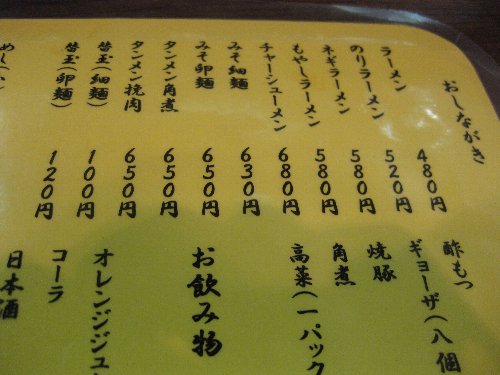 おしながき
ラーメン 480円
のりラーメン 520円
ネギラーメン 580円
もやしラーメン 580円
チャーシューメン 680円
みそ細麺 630円
みそ卵麺 650円
タンメン角煮 650円
タンメン挽肉 650円
替玉(細麺) 100円
替玉(卵麺) 120円
酢もつ
ギョーザ(八個
焼豚
角煮
高菜(一パック
お飲み物
オレンジジュ
コーラ
日本酒